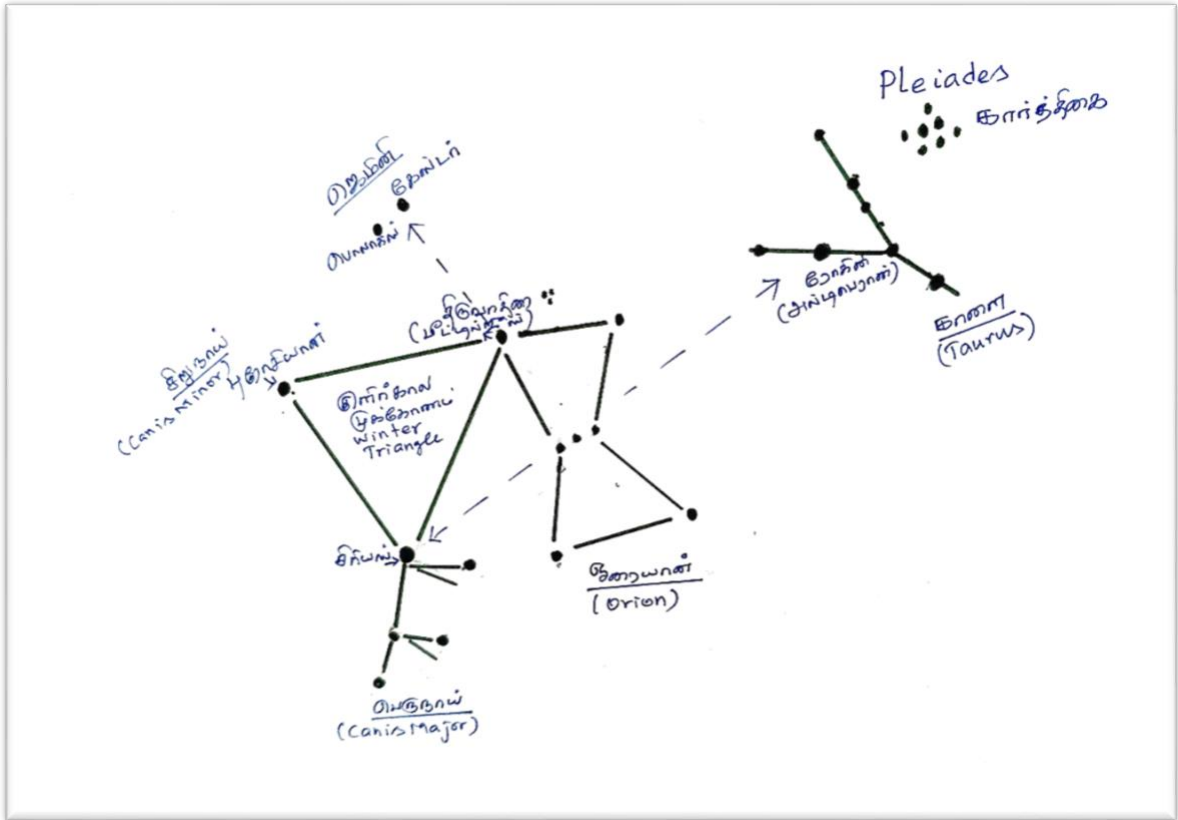 Pleiades
கார்த்திகை
ஜெமினி
கேஸ்டர்
பொலாக்ஸ்
திருவாதிரை
ரோகினி
(அல்டிபெரான்)
காளை
(Taurus)
சிறுநாய்
(Canis Minor)
புரோசியான்
குளிர்கால
முக்கோணம்
Winter
Triangle
சிரியஸ்
ஒரையான்
(Orion)
பெருநாய்
(Canis Major)